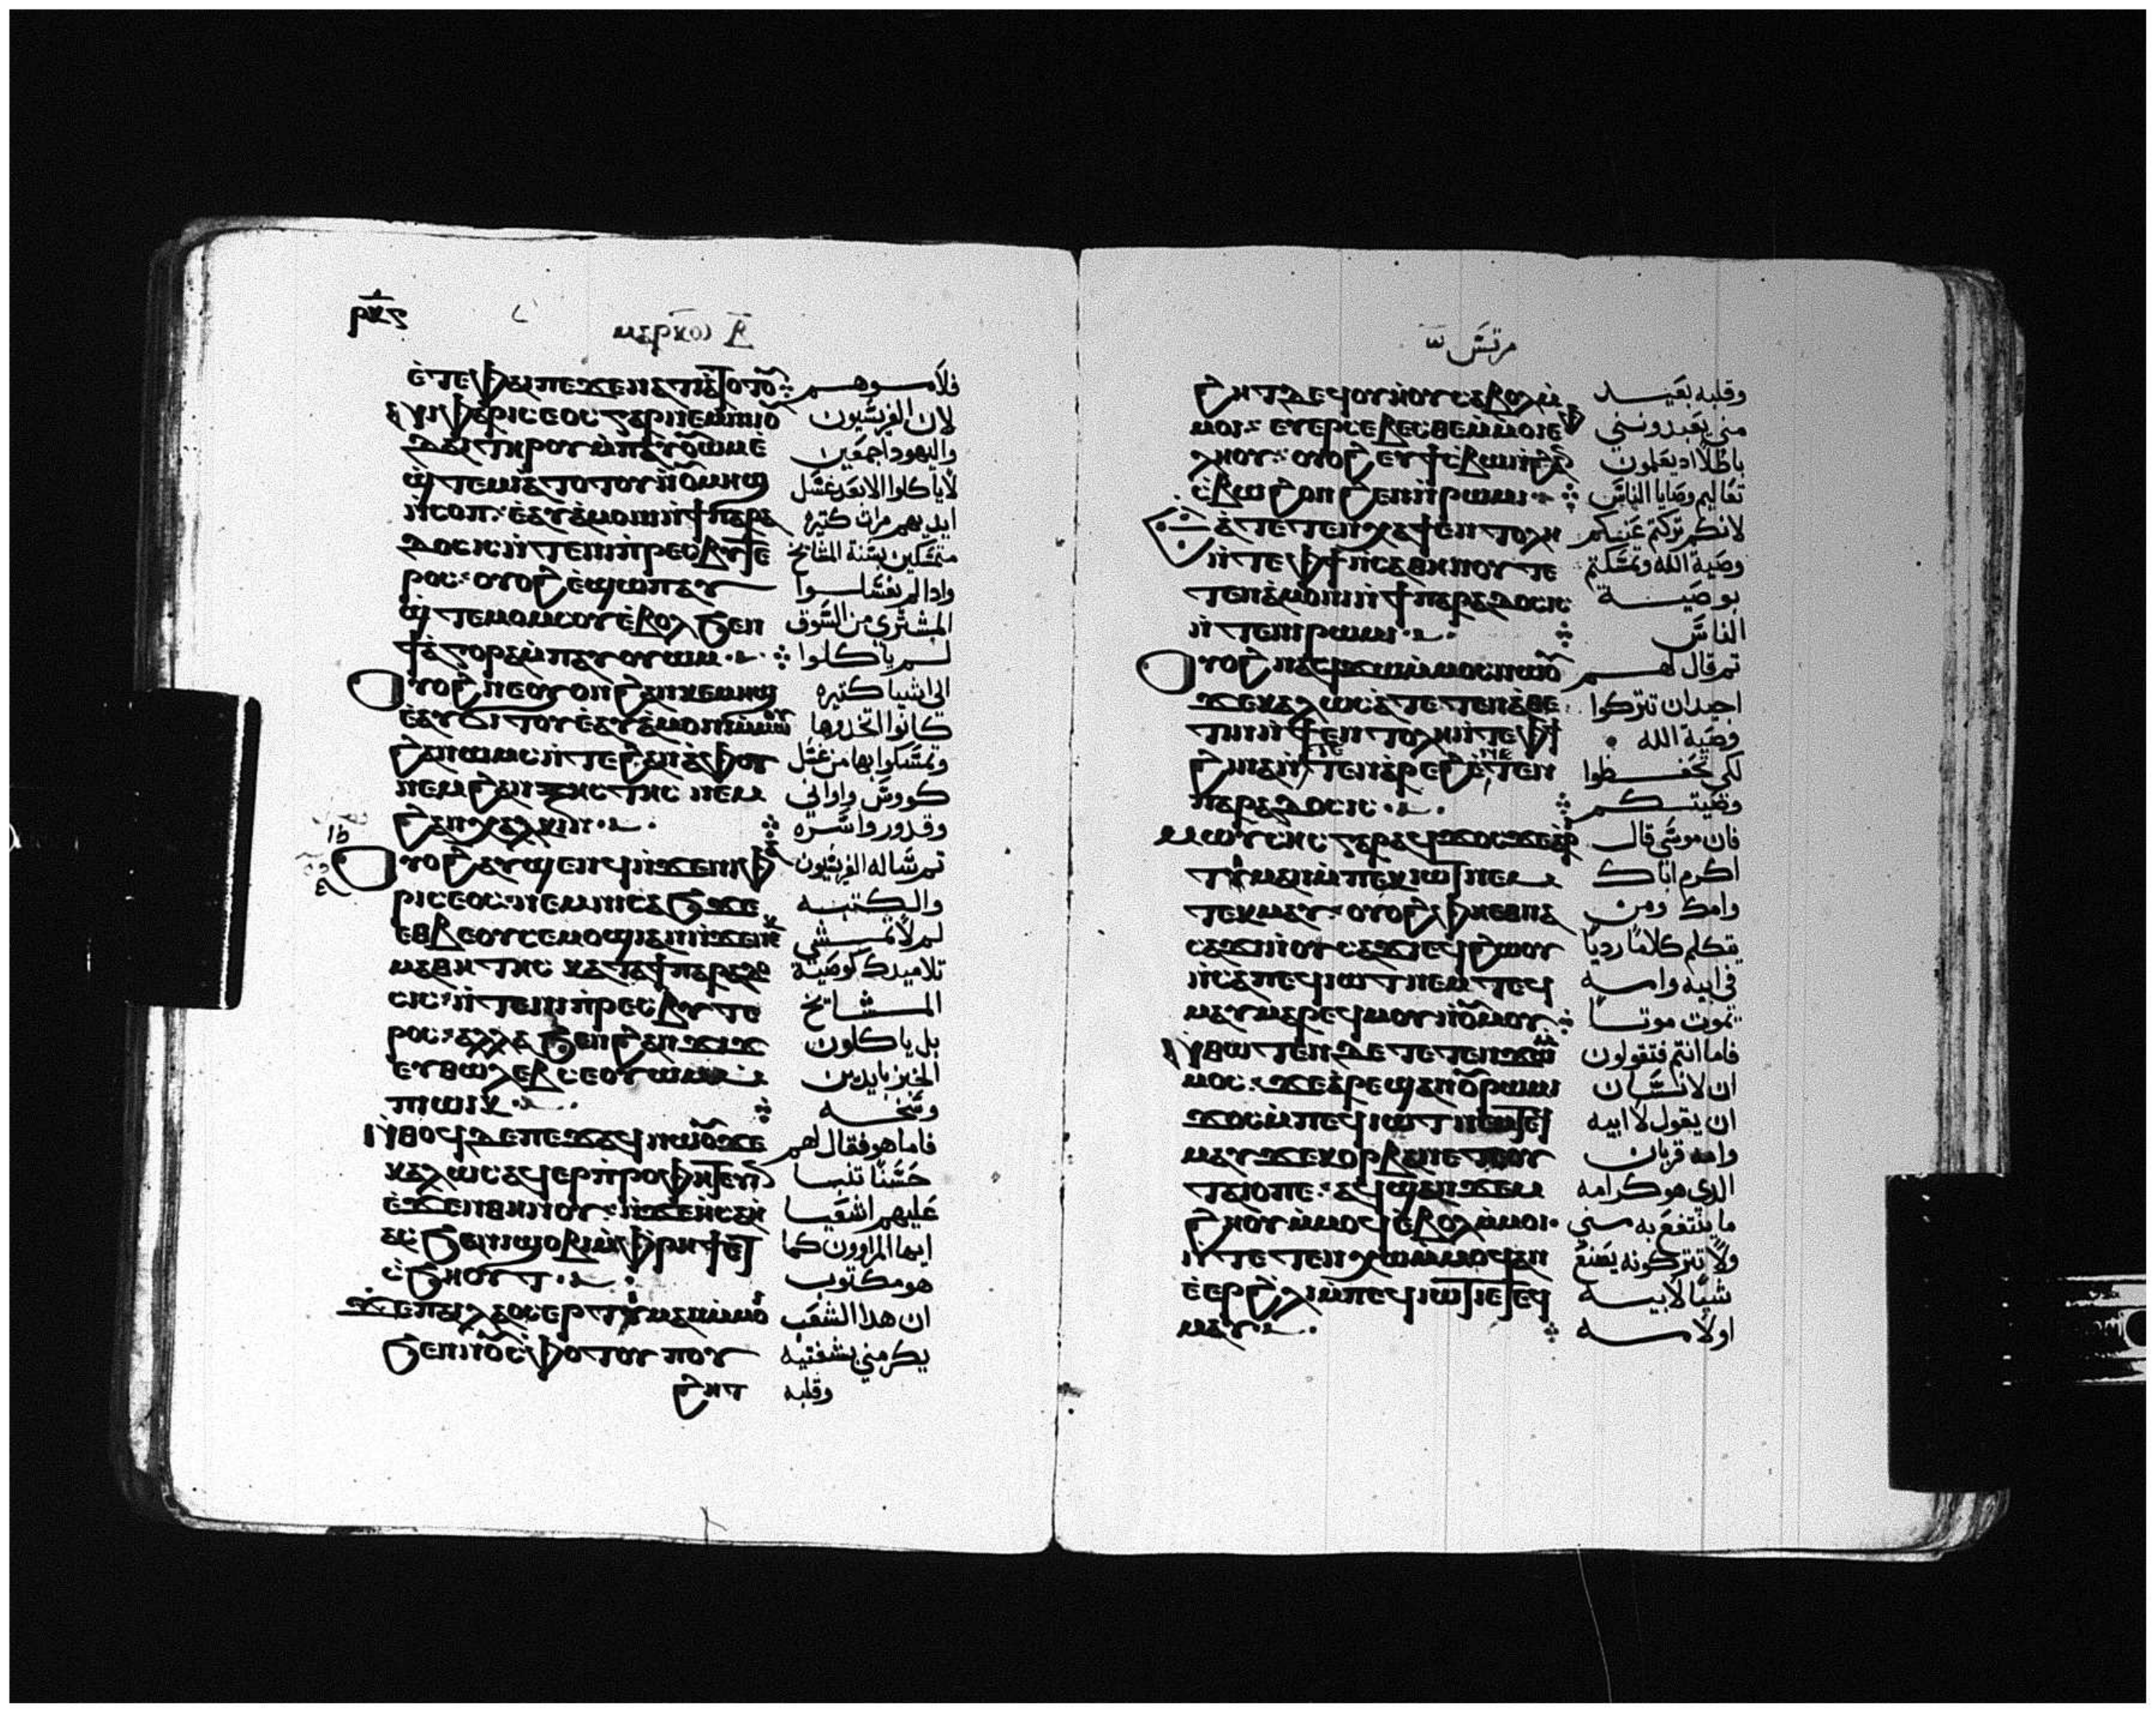 ⲣⲕⲋ
ⲙⲁⲣⲕⲟⲛ ⲍ
ⲉ̀ⲧⲉ ⲫⲁⲓ ⲡⲉ ϫⲉ ⲛⲁⲧⲓⲁ̀ⲧⲟⲧⲟⲩ
ⲛⲓⲫⲁⲣⲓⲥⲉⲟⲥ ⲅⲁⲣ ⲛⲉⲙ ⲛⲓⲓⲟⲩ
ⲇⲁⲓ ⲧⲏⲣⲟⲩ ⲙ̀ⲡⲁⲩⲟⲩⲱⲙ ⲉ̀
ϣⲧⲉⲙⲓⲁ ⲧⲟⲧⲟⲩ ⲛ̀ⲟⲩⲙⲏϣ
ⲛ̀ⲥⲟⲡ ⲉⲁⲩⲁ̀ⲙⲟⲛⲓ ⲛ̀ϯⲡⲁⲣⲁ
ⲇⲟⲥⲓⲥ ⲛ̀ⲧⲉ ⲛⲓⲡⲣⲉⲥⲃⲩⲧⲉ
ⲣⲟⲥ ⲟⲩⲟϩ ⲉ̀ϣⲱⲡ ⲁⲩ
ϣ̀ⲧⲉⲙⲟⲙⲥⲟⲩ ⲉ̀ⲃⲟⲗ ϧⲉⲛ
ϯⲁ̀ⲅⲟⲣⲁ ⲙ̀ⲡⲁⲩⲟⲩⲱⲙ
ⲟⲩⲟϩ ⲛⲉ ⲟⲩⲟⲛ ϩⲁⲛⲕⲉⲙⲏϣ
ⲉ̀ⲁⲩϭⲓⲧⲟⲩ ⲉ̀ⲁⲩⲁ̀ⲙⲟⲛⲓ ⲙ̀ⲙⲱⲟⲩ
ϩⲁⲛⲱⲙⲥ ⲛ̀ⲧⲉ ϩⲁⲛⲁ̀ⲫⲟⲧ
ⲛⲉⲙ ϩⲁⲛⲝⲏⲥⲧⲏⲥ ⲛⲉⲙ
ϩⲁⲛⲭⲁⲗⲕⲓⲛ
ⲟⲩⲟϩ ⲁⲩϣⲉⲛϥ ⲛ̀ϫⲉ ⲛⲓⲫⲁ
ⲣⲓⲥⲉⲟⲥ ⲛⲉⲙ ⲛⲓⲥⲁϧ ϫⲉ
ⲉⲑⲃⲉⲟⲩ ⲥⲉⲙⲟϣⲓ ⲁⲛ ⲛ̀ϫⲉ ⲛⲉⲕ
ⲙⲁⲑⲏⲧⲏⲥ ⲕⲁⲧⲁ ϯⲡⲁⲣⲁⲇⲟ
ⲥⲓⲥ ⲛ̀ⲧⲉ ⲛⲓⲡⲣⲉⲥⲃⲩⲧⲉ
ⲣⲟⲥ ⲁⲗⲗⲁ ϧⲉⲛ ϩⲁⲛϫⲓϫ
ⲉⲩⲑⲱⲗⲉⲃ ⲥⲉⲟⲩⲱⲙ ⲙ̀
ⲡⲓⲱⲓⲕ
ⲛ̀ⲑⲟϥ ⲇⲉ ⲡⲉϫⲁϥ ⲛⲱⲟⲩ ϫⲉ
ⲕⲁⲗⲱⲥ ⲁϥⲉⲣⲡⲣⲟⲫⲏⲧⲉⲩⲓⲛ
ⲉ̀ϫⲉⲛ ⲑⲏⲛⲟⲩ ⲛ̀ϫⲉ ⲏ̀ⲥⲁⲏ̀
ⲁⲥ ϧⲁ ⲛⲓϣⲟⲃⲓ ⲙ̀ⲫⲣⲏϯ ⲉⲧ
ⲥ̀ϧⲏⲟⲩⲧ
ϫⲉ ⲡⲁⲓⲗⲁⲟⲥ ⲉⲣⲧⲓⲙⲁⲛ ⲙ̀ⲙⲟⲓ
ϧⲉⲛ ⲛⲟⲩⲥ̀ⲫⲟⲧⲟⲩ ⲡⲟⲩ
ϩⲏⲧ
فلاموهم
لان الفريسيون
واليهود اجمعين
لا ياكلوا الا بعد غسل
ايديهم مرار كتيره
متمسكين بسنة المشايخ
وادا لم يغسلوا
المشتري من السوق
لم ياكلوا
الى اشيا كتيره
كانوا اتخدوها
وتمسكوا بها من غسل
كووس واواني
وقدور واسره
تم ساله الفريسيون
والكتبه
لم لا تمشي
تلاميدك كوصية
المشايخ
بل ياكلون
الخبز بايدين
وسخه
فاما هو فقال لهم
حسنا تنبا
عليهم اشعيا
ايها المراوون كما
هو مكتوب
ان هدا الشعب
يكرمني بشفتيه
وقلبه
مرقس
ϩⲏⲧ ⲇⲉ ϥⲟⲩⲏⲟⲩ ⲥⲁⲃⲟⲗ ⲙ̀
ⲙⲟⲓ ⲉⲩⲉⲣⲥⲉⲃⲉⲥⲑⲉ ⲙ̀ⲙⲟⲓ ⲉ̀ⲫ
ⲗⲏⲟⲩ ⲟⲩⲟϩ ⲉⲩϯⲥ̀ⲃⲱ ⲛ̀ϩⲁⲛ
ⲥ̀ⲃⲱ ϩⲟⲛϩⲉⲛ ⲛ̀ⲣⲱⲙⲓ
ⲁ̀ⲧⲉⲧⲉⲛⲭⲁ ϯⲉⲛⲧⲟⲗⲏ
ⲛ̀ⲧⲉ ⲫϯ ⲛ̀ⲥⲁ ⲑⲏⲛⲟⲩ ⲧⲉ
ⲧⲉⲛⲁ̀ⲙⲟⲛⲓ ⲛ̀ϯⲡⲁⲣⲁⲇⲟⲥⲓⲥ
ⲛ̀ⲧⲉ ⲛⲓⲣⲱⲙⲓ
ⲟⲩⲟϩ ⲛⲁϥϫⲱ ⲙ̀ⲙⲟⲥ ⲛⲱⲟⲩ
ϫⲉ ⲕⲁⲗⲱⲥ ⲁ̀ⲧⲉⲧⲉⲛⲁ̀ⲑⲉ
ⲧⲓⲛ ⲛ̀ϯⲉⲛⲧⲟⲗⲏ ⲛ̀ⲧⲉ ⲫϯ
ϩⲓⲛⲁ ⲛ̀ⲧⲉⲧⲉⲛⲁ̀ⲣⲉϩ ⲉ̀ⲧⲉⲧⲉⲛ
ⲡⲁⲣⲁⲇⲟⲥⲓⲥ
ⲙⲱⲩⲥⲏⲥ ⲅⲁⲣ ⲁϥϫⲟⲥ ϫⲉ ⲁ̀ⲣⲓ
ⲧⲓⲙⲁⲛ ⲙ̀ⲡⲉⲕⲓⲱⲧ ⲛⲉⲙ
ⲧⲉⲕⲙⲁⲩ ⲟⲩⲟϩ ⲫⲏ ⲉⲑⲛⲁ
ⲥⲁϫⲓ ⲛ̀ⲟⲩⲥⲁϫⲓ ⲉϥϩⲱⲟⲩ
ⲛ̀ⲥⲁ ⲡⲉϥⲓⲱⲧ ⲛⲉⲙ ⲧⲉϥ
ⲙⲁⲩ ⲙⲁⲣⲉϥⲙⲟⲩ ⲛ̀ⲟⲩⲙⲟⲩ
ⲛ̀ⲑⲱⲧⲉⲛ ⲇⲉ ⲧⲉⲧⲉⲛϫⲱ ⲙ̀
ⲙⲟⲥ ϫⲉ ⲁ̀ⲣⲉϣⲁⲛ ⲟⲩⲣⲱⲙⲓ
ϫⲟⲥ ⲙ̀ⲡⲉϥⲓⲱⲧ ⲛⲉⲙ ⲧⲉϥ
ⲙⲁⲩ ϫⲉ ⲕⲟⲣⲃⲁⲛ ⲉⲧⲉ ⲟⲩ
ⲧⲁⲓⲟ ⲡⲉ ⲁϥϣⲁⲛϫⲉⲙ
ϩⲏⲟⲩ ⲙ̀ⲙⲟϥ ⲉ̀ⲃⲟⲗ ⲙ̀ⲙⲟⲓ
ⲛ̀ⲧⲉⲧⲉⲛⲭⲱ ⲙ̀ⲙⲟϥ ⲁⲛ
ⲉ̀ⲉⲣ ϩ̀ⲗⲓ ⲙ̀ⲡⲉϥⲓⲱⲧ ⲓⲉ ⲧⲉϥ
ⲙⲁⲩ
وقلبه بعيد
مني يعبدونني
باطلا اد يعلمون
تعاليم وصايا الناس
لانكم تركتم عنكم
وصية الله وتمسكتم
بوصية
الناس
تم قال لهم
اجيد ان تتركوا
وصية الله
لكي تحفظوا
وصيتكم
فان موسى قال
اكرم اباك
وامك ومن
يتكلم كلاما رديا
في ابيه وامه
يموت موتا
فاما انتم فتقولون
ان الانسان
ان يقول لابيه
وامه قربان
الدي هو كرامه
ما ينتفع به مني
ولا تتركونه يصنع
شيا لابيه
او لامه